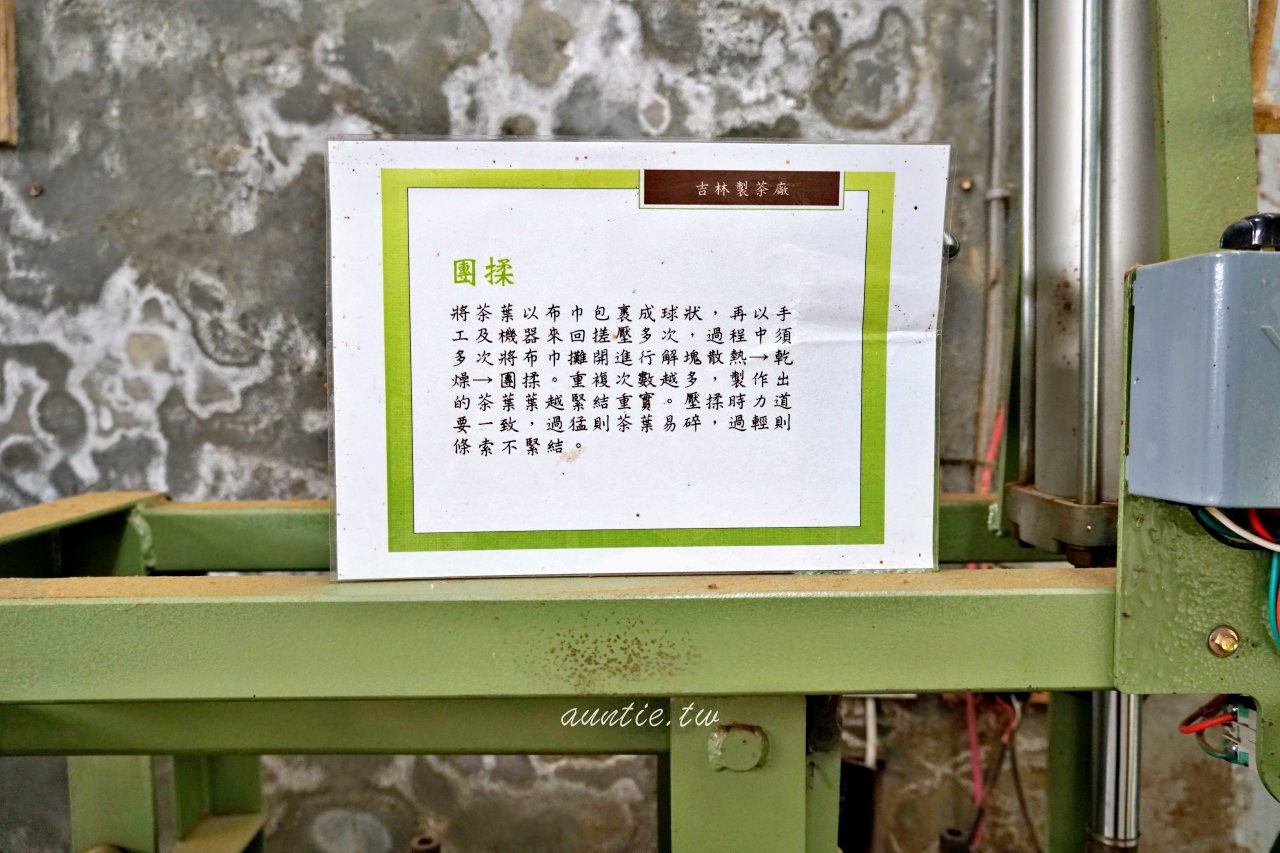 吉林製茶廠
團揉
將茶葉以布巾包裹成球狀，再以手
工及機器來回搓壓多次，過程中須
多次將布巾攤開進行解塊散熱→乾
燥→團揉。重複次數越多，製作出
的茶葉葉越緊結重實。壓揉時力道
要一致，過猛則茶葉易碎，過輕則
條索不緊結。
auntie.tw